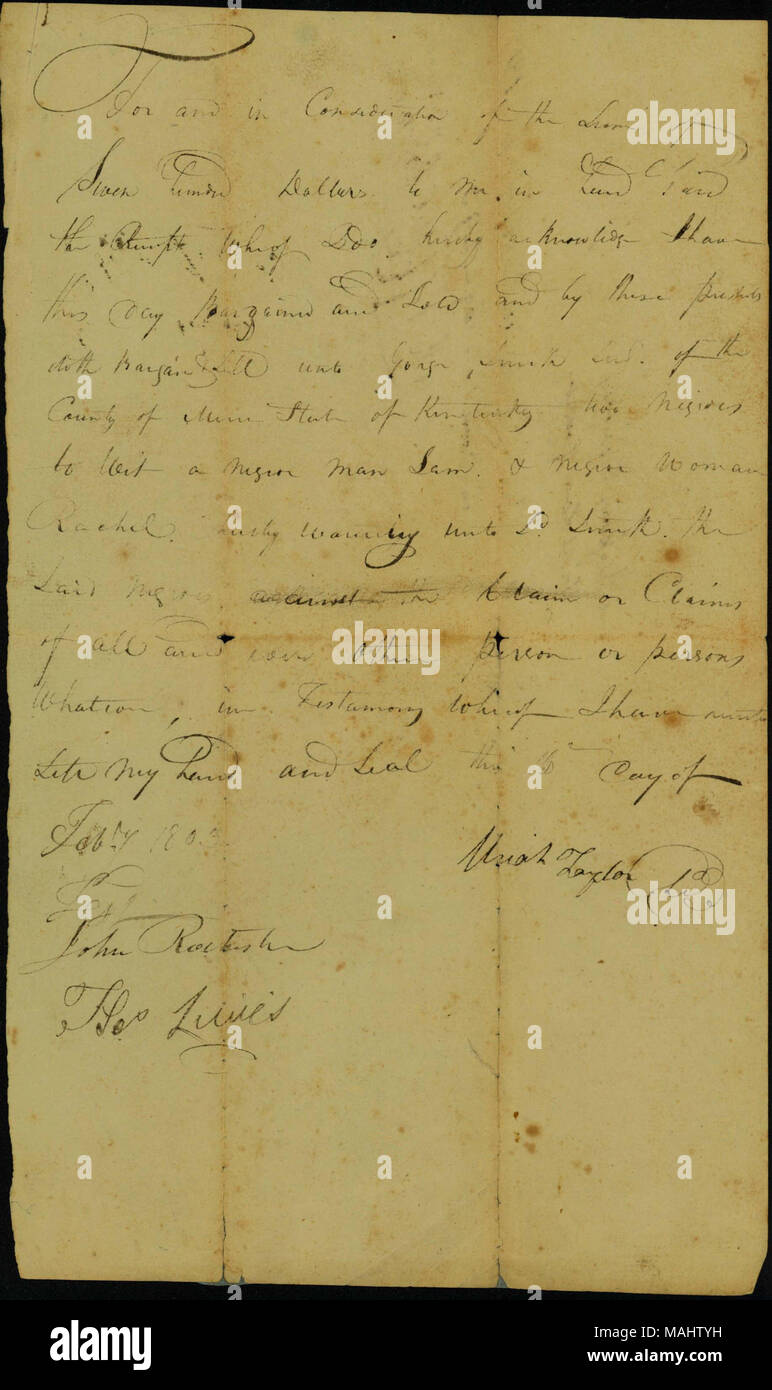 For and in Consideration of the Sum of
Seven Hundred Dollars to me in hand Paid
the Receipt Whereof I Doo hereby acknowledge I have
this day Bargained and Sold, and by these presents
doth Bargain & Sell unto George Smith Sr. of the
County of State of Kentucky two Negroes
to Wit a Negroe man Sam. & Negroe Woman
Rachel. unto Sd. Smith. the
Said Negroes against the Claim or Claims
of all and other person or persons
Whatsoever, in Testamony Whereof I have
Sett my hand and Seal this day of
Feby. 1803
Test
John
Thos
Uriah Taylor
alamy
a
Image ID: MAHTYH
www.alamy.com